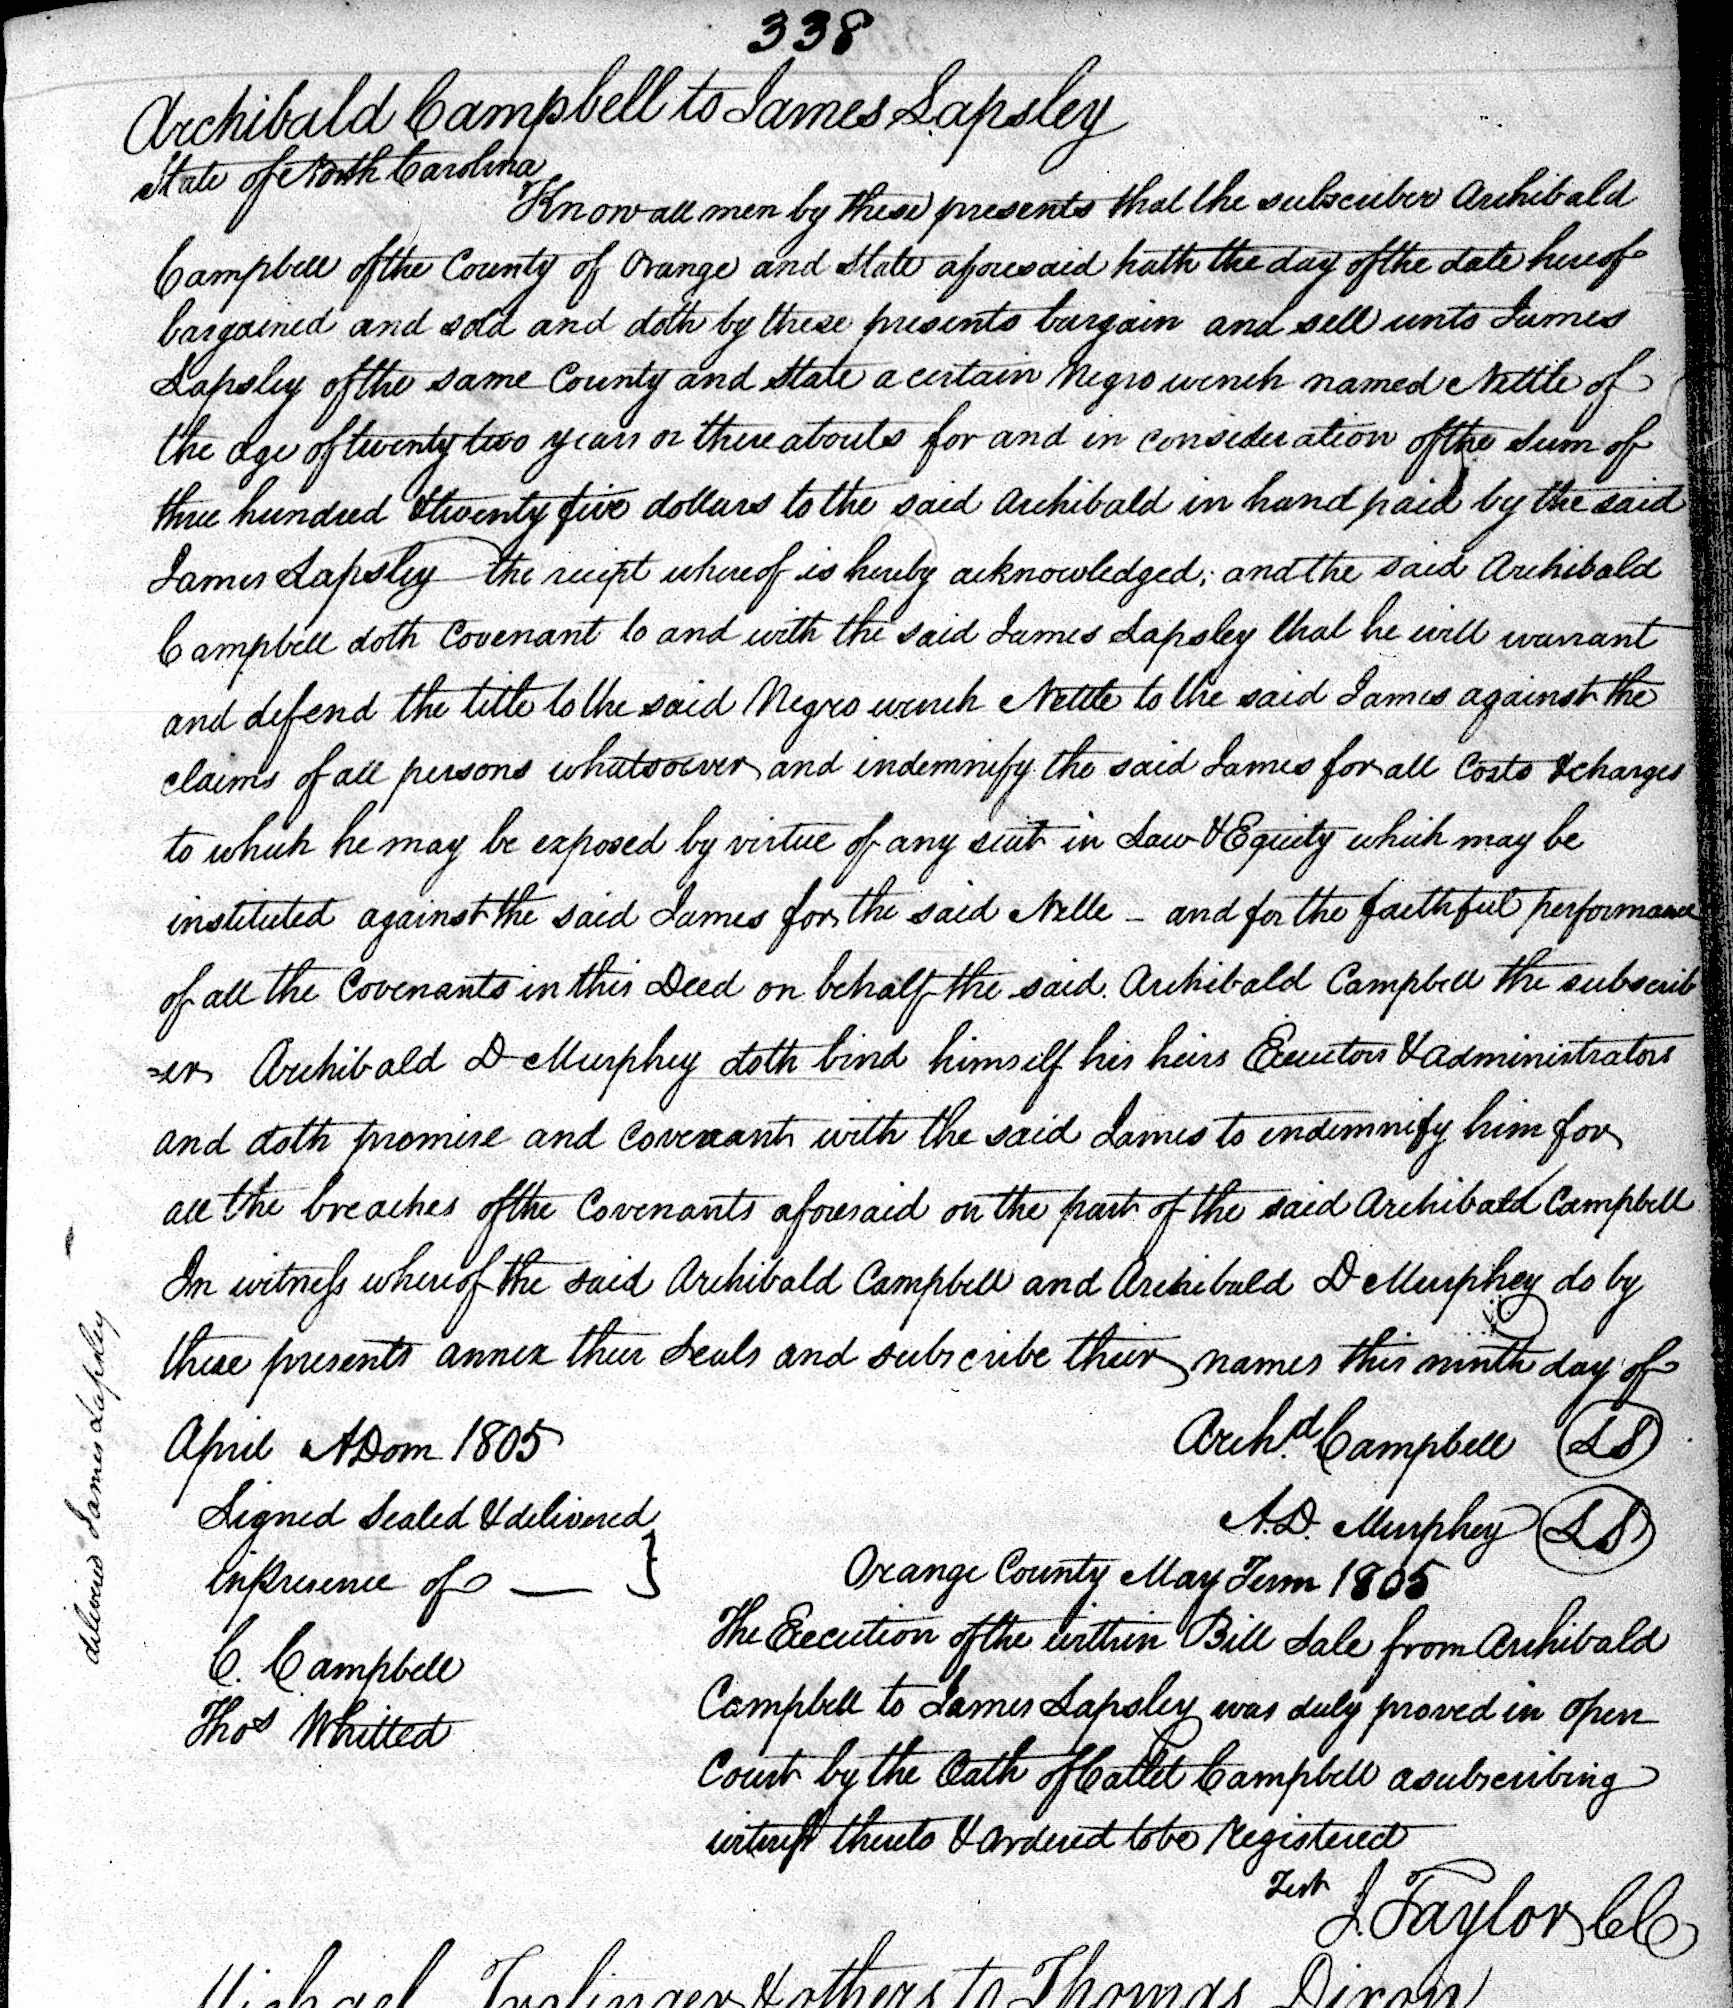 338
Archibald Campbell to James Lapsley
State of North Carolina
Know all men by these presents that the subscriber Archibald
Campbell of the County of Orange and State aforesaid hath the day of the date hereof
bargained and sold and doth by these presents bargain and sell unto James
Lapsley of the same County and State a certain Negro wench named Nettle of
the age of twenty two years or thereabouts for and in consideration of the Sum of
three hundred & twenty five dollars to the said Archibald in hand paid by the said
James Lapsley the reciept whereof is hereby acknowledged; and the said Archibald
Campbell doth Covenant to and with the said James Lapsley that he will warrant
and defend the title to the said Negro wench Nettle to the said James against the
claims of all persons whatsoever and indemnify the said James for all Costs & charges
to which he may be exposed by virtue of any suit in Law & Equity which may be
instituted against the said James for the said Nelle - and for the faithful performance
of all the Covenants in this Deed on behalf the said Archibald Campbell the subscrib
=er Archibald D Murphey doth bind himself his heirs Executors & administrators
and doth promise and Covenant with the said James to indemnify him for
all the breaches of the Covenants aforesaid on the part of the said Archibald Campbell
In witness whereof the said Archibald Campbell and Archibald D Murphey do by
these presents annex their Seals and subscribe their names this ninth day of
April ADom 1805
Archd. Campbell LS
Signed Sealed & delivered
A.D. Murphey LS
in presence of —
Orange County May Term 1805
C. Campbell
Thos Whitted
The Execution of the within Bill Sale from Archibald
Campbell to James Lapsley was duly proved in open
Court by the Oath of Catlet Campbell a subscribing
witness thereto & ordered to be Registered
Test
J. Taylor CC
delivered James Lapsley
Michael & others to Thomas Dixon